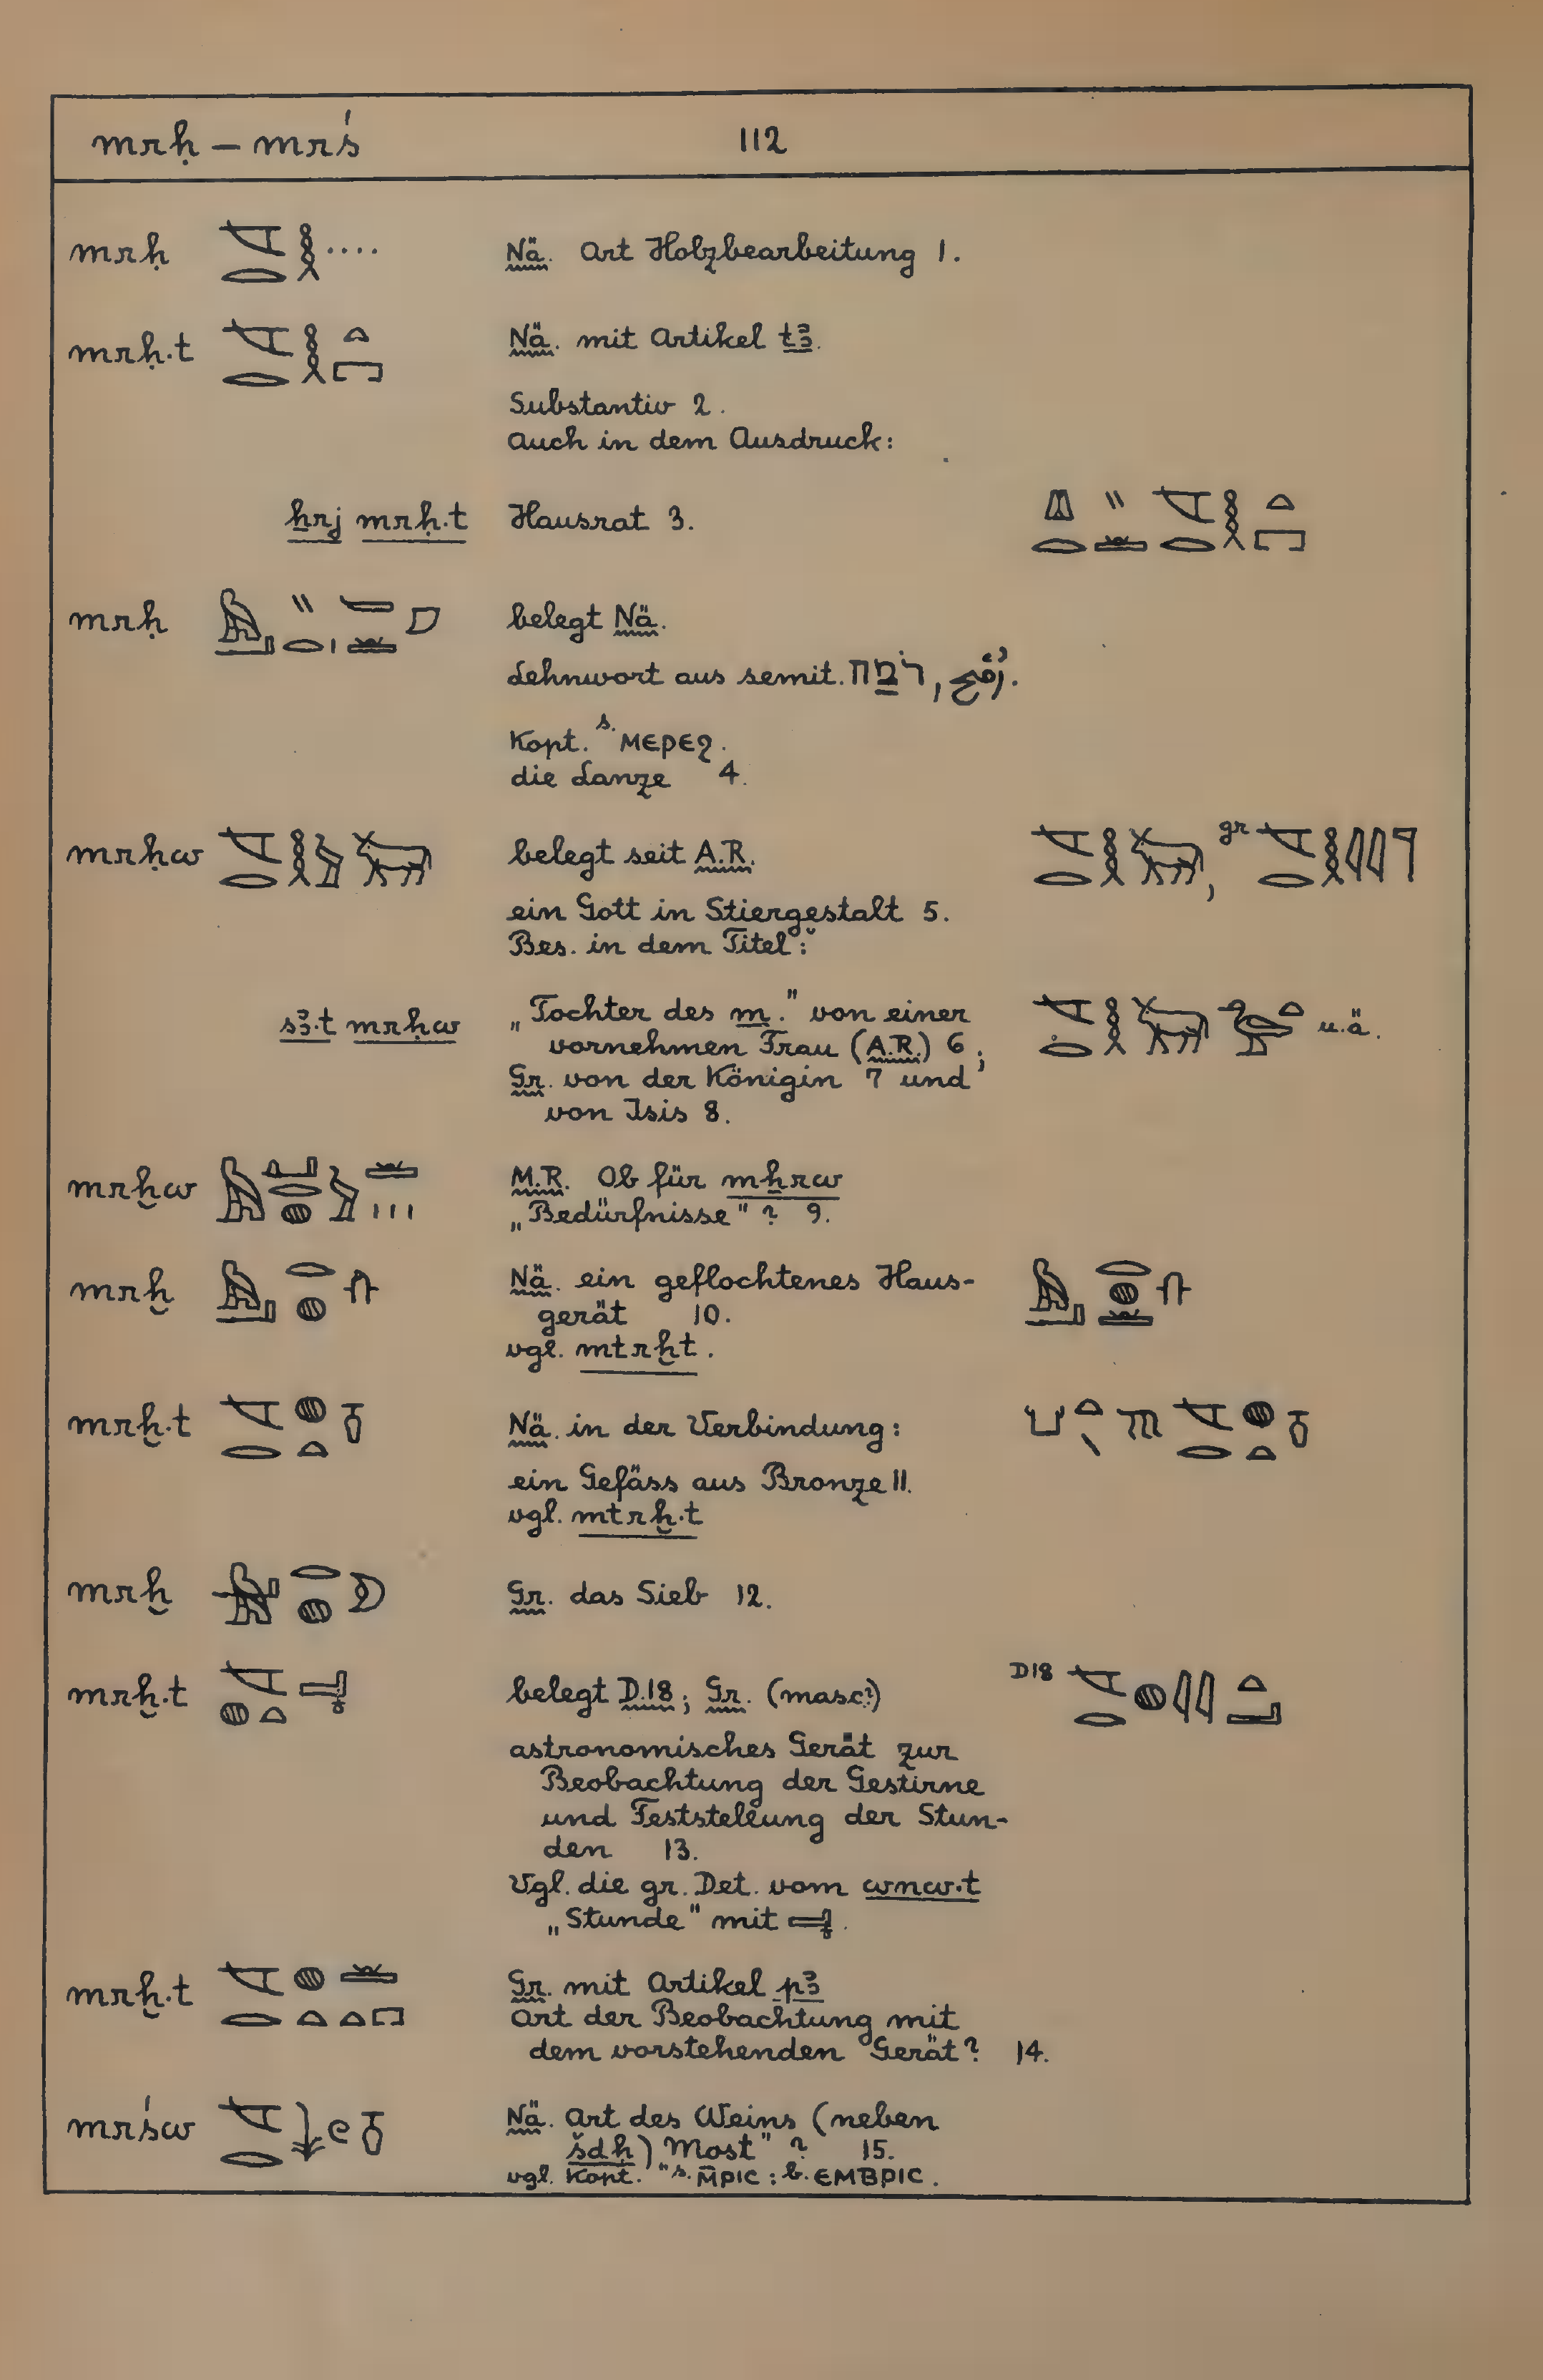 mrḥ – mrś 112
mrḥ Nä. Art Holzbearbeitung 1.
mrḥ.t Nä. mit Artikel tꜣ.
Substantiv 2.
Auch in dem Ausdruck:
ẖrj mrḥ.t Hausrat 3.
mrḥ belegt Nä.
Lehnwort aus semit. רֹמַח, رُمْح.
Kopt. s. ⲙⲉⲣⲉϩ.
die Lanze 4.
mrḥw belegt seit A.R. , gr
ein Gott in Stiergestalt 5.
Bes. in dem Titel:
sꜣ.t mrḥw „Tochter des m." von einer u.ä.
vornehmen Frau (A.R.) 6;
Gr. von der Königin 7 und
von Isis 8.
mrḫw M.R. Ob für mẖrw
„Bedürfnisse" ? 9.
mrḫ Nä. ein geflochtenes Haus-
gerät 10.
vgl. mtrḫt.
mrḫ.t Nä. in der Verbindung:
ein Gefäss aus Bronze 11.
vgl. mtrḫ.t
mrḫ Gr. das Sieb 12.
mrḫ.t belegt D.18; Gr. (masc?) D18
astronomisches Gerät zur
Beobachtung der Gestirne
und Feststellung der Stun-
den 13.
Vgl. die gr. Det. vom wnw.t
„Stunde" mit .
mrḫ.t Gr. mit Artikel pꜣ
Art der Beobachtung mit
dem vorstehenden Gerät? 14.
mrśw Nä. Art des Weins (neben
šdḥ) „Most" ? 15.
vgl. Kopt. s. ⲙ̄ⲣⲓⲥ : b. ⲉⲙⲃⲣⲓⲥ.